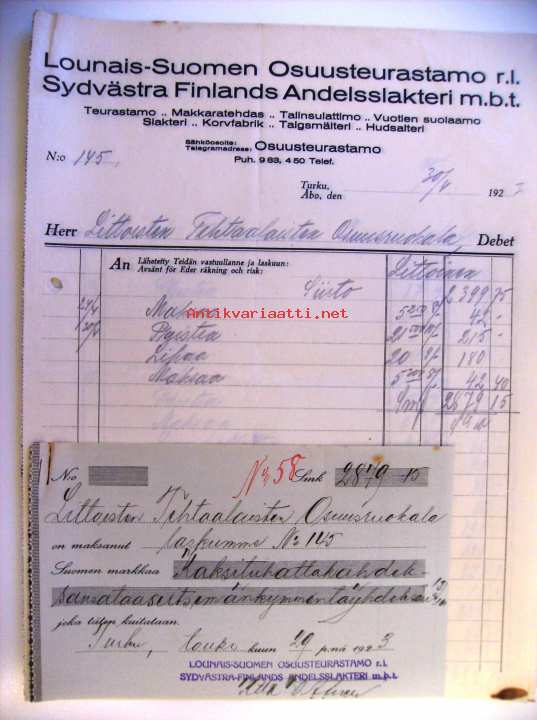 Lounais-Suomen Osuusteurastamo r.l.
Sydvästra Finlands Andelsslakteri m.b.t.
Teurastamo .. Makkaratehdas .. Talinsulattimo .. Vuotien suolaamo
Slakteri .. Korvfabrik .. Talgsmälteri .. Hudsalteri
Sähköosoite:
Telegramadress: Osuusteurastamo
Puh. 983, 450 Telef.
N:o 145
Turku,
Åbo, den 30/4 192
Herr Littoisten Tehtaalaisten Osuusruokala Debet
An Lähetetty Teidän vastuullanne ja laskuun:
Avsänt för Eder räkning och risk: Littoinen
Siirto 2,399 75
Maksaa 42
Paistia 215
Lihaa 20 180
Maksaa 42 40
Smk 2879 15
Antikvariaatti.net
antikvariaatti@antikvariaatti.net
N:o No 58 Smk 2879 15
Littoisten Tehtaalaisten Osuusruokala
on maksanut laskumme No 145
Suomen markkaa Kaksituhattakahdek
sansataaseitsemänkymmentäyhdeksän 15
joka täten kuitataan.
Turku, Touko kuun 29 p:nä 1923
LOUNAIS-SUOMEN OSUUSTEURASTAMO r.l.
SYDVÄSTRA-FINLANDS ANDELSSLAKTERI m.b.t.